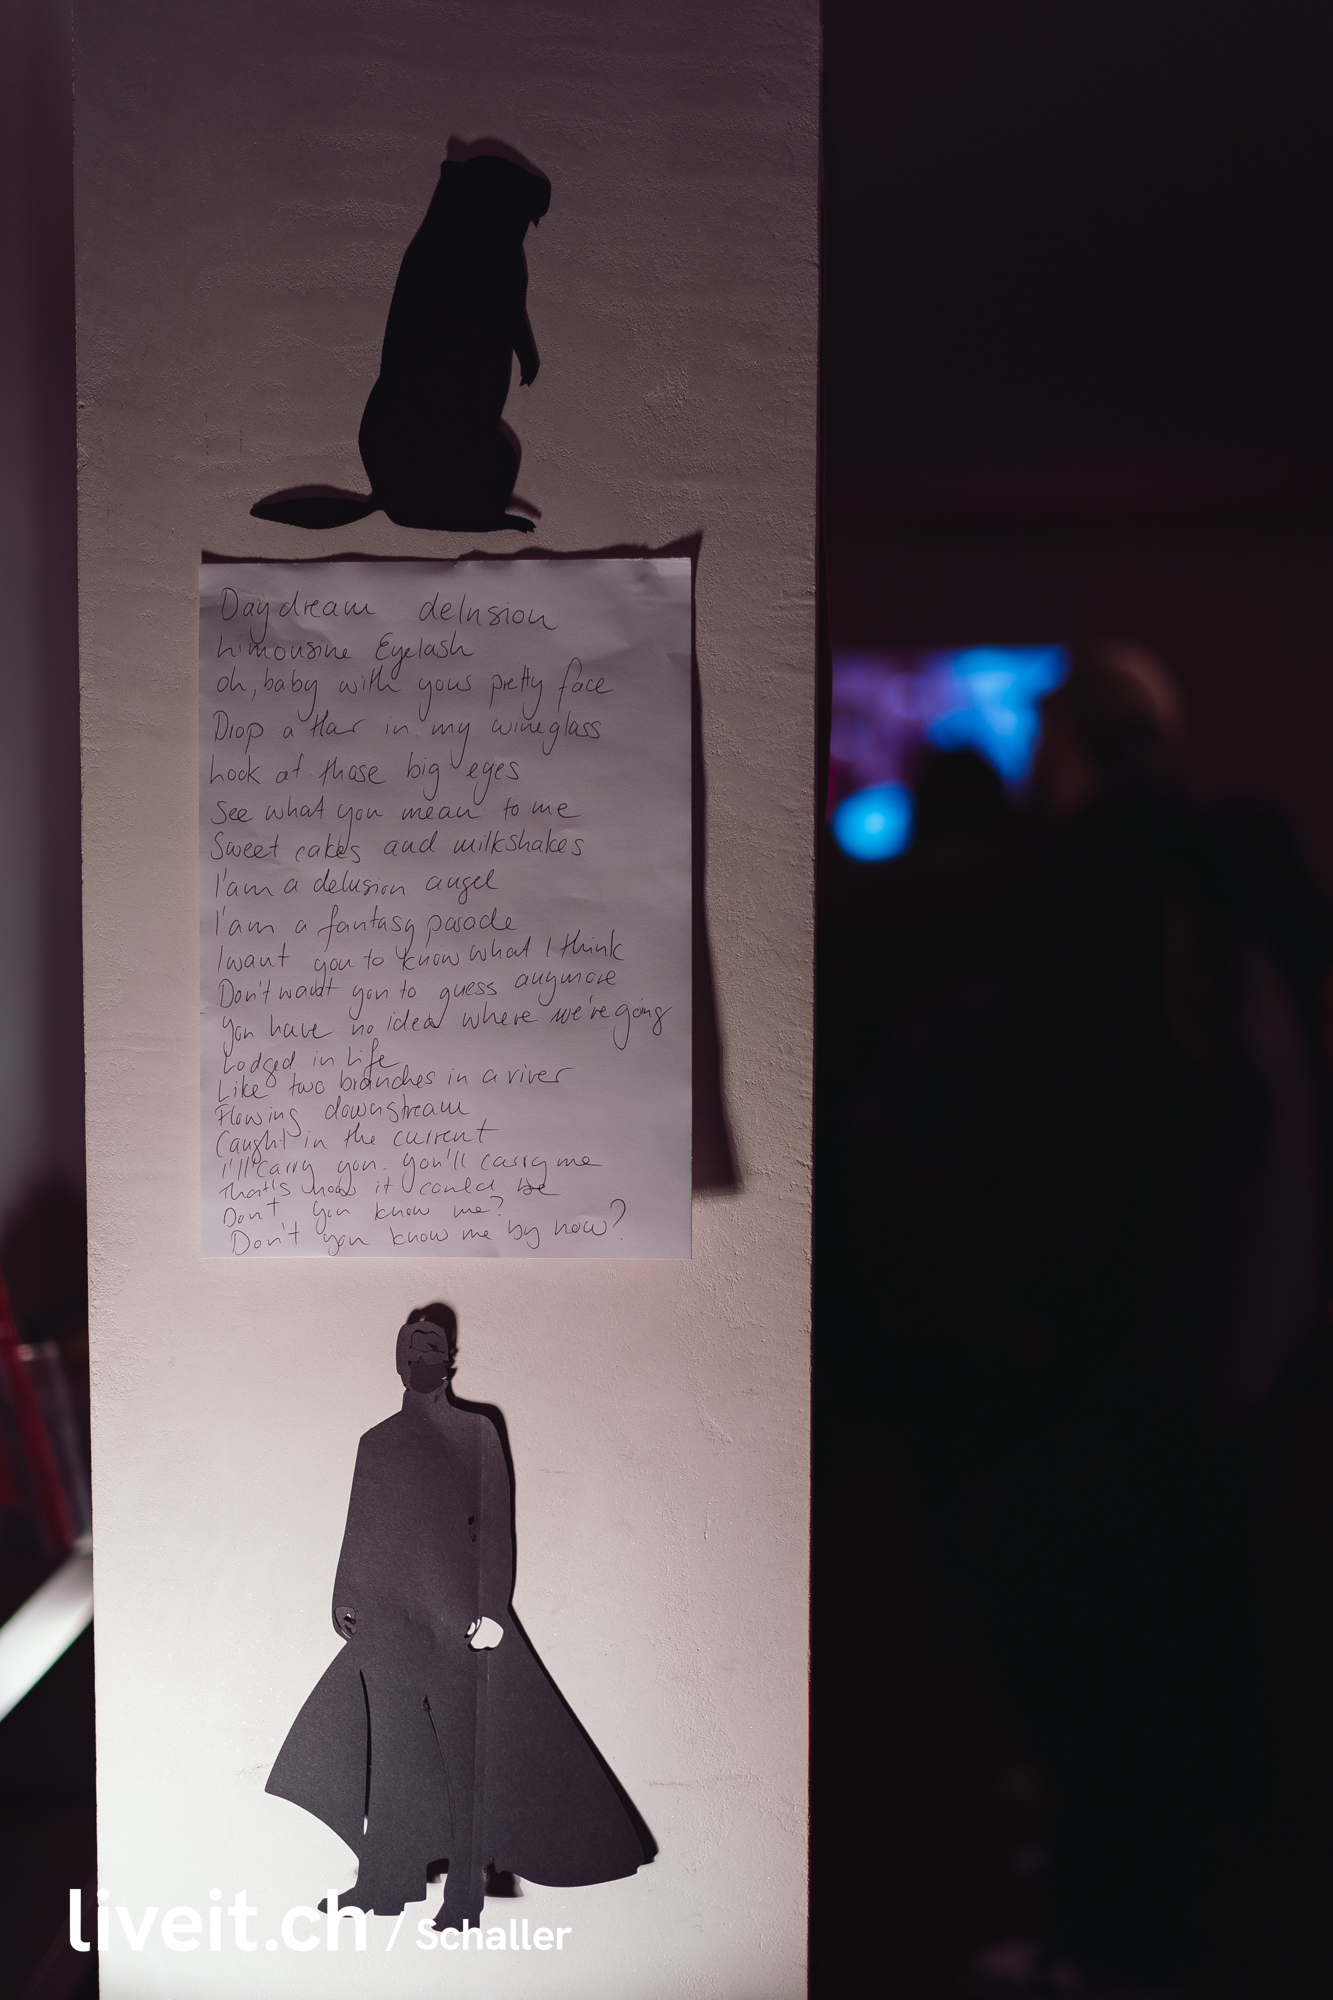 Daydream delusion
Limousine Eyelash
oh, baby with your pretty face
Drop a tear in my wineglass
Look at those big eyes
See what you mean to me
Sweet cakes and milkshakes
I'am a delusion angel
I'am a fantasy parade
I want you to know what I think
Don't want you to guess anymore
You have no idea where we're going
Lodged in Life
Like two branches in a river
Flowing downstream
Caught in the current
I'll carry you. You'll carry me
That's how it could be
Don't you know me?
Don't you know me by now?
liveit.ch / Schaller